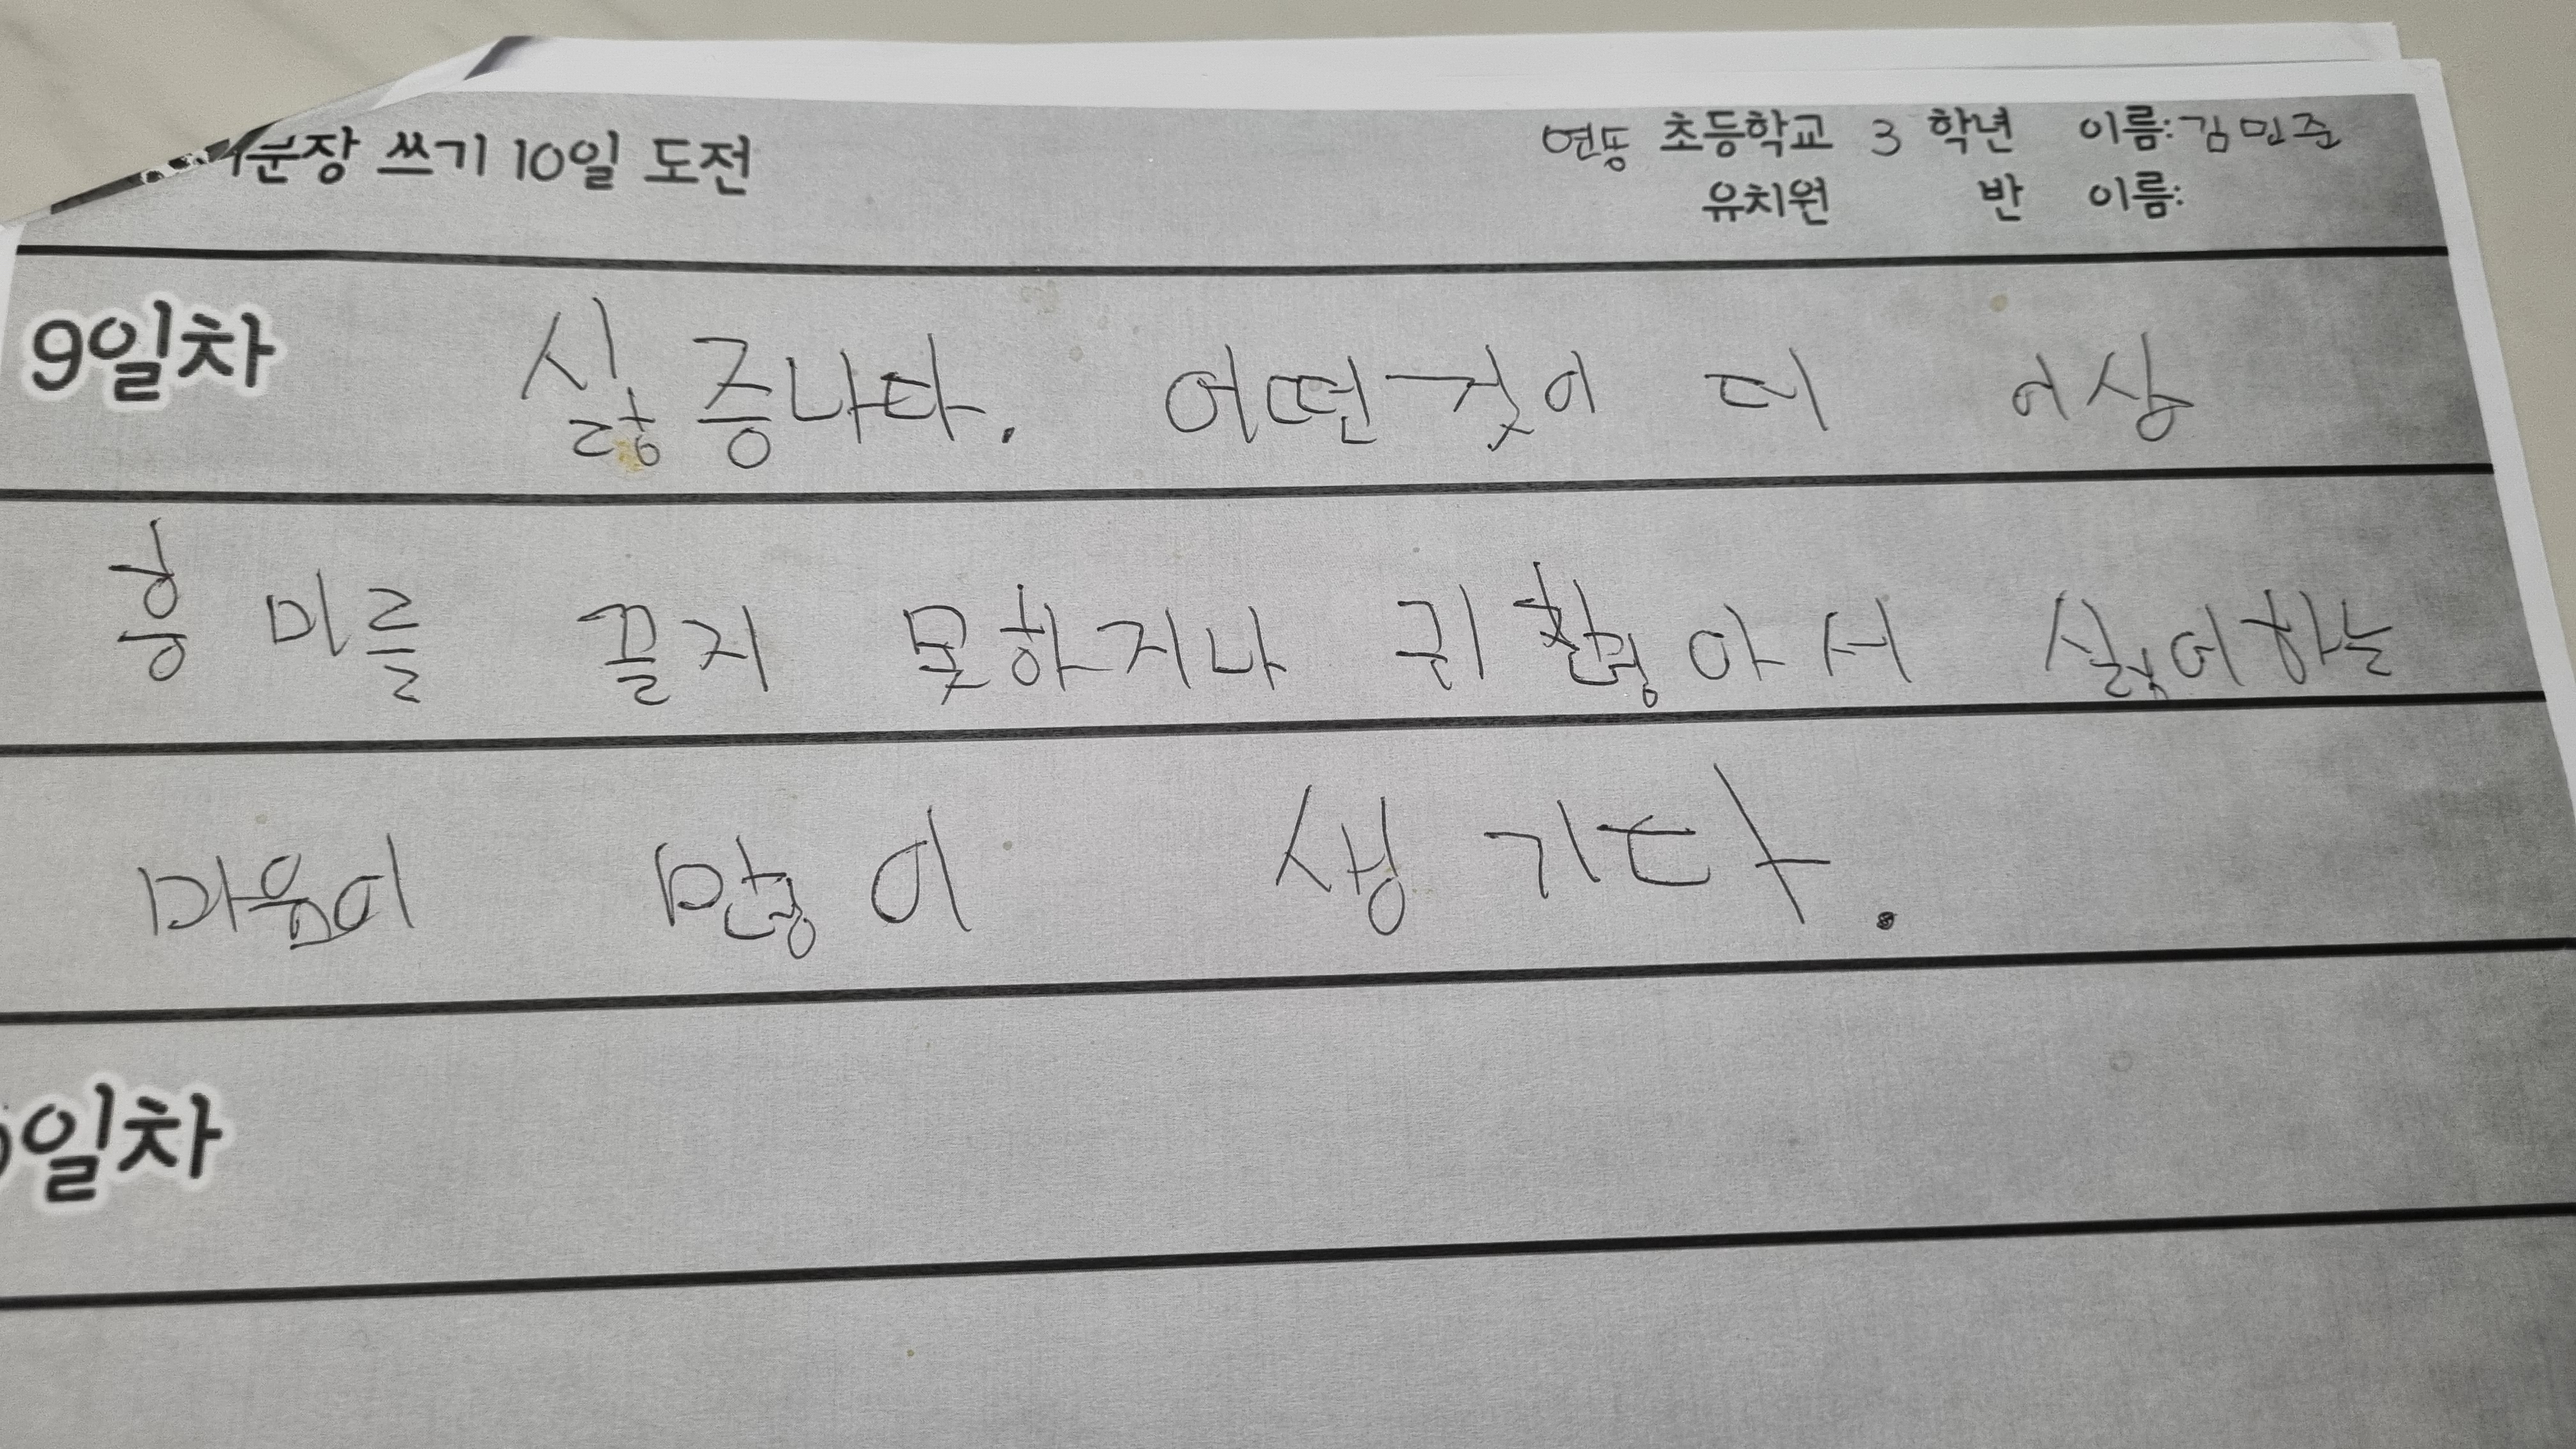 문장 쓰기 10일 도전
연동 초등학교 3 학년 이름: 김민준
유치원 반 이름:
9일차 싫증나다. 어떤것이 더 이상
흥미를 끌지 못하거나 귀찮아서 싫어하는
마음이 많이 생기다.
일차